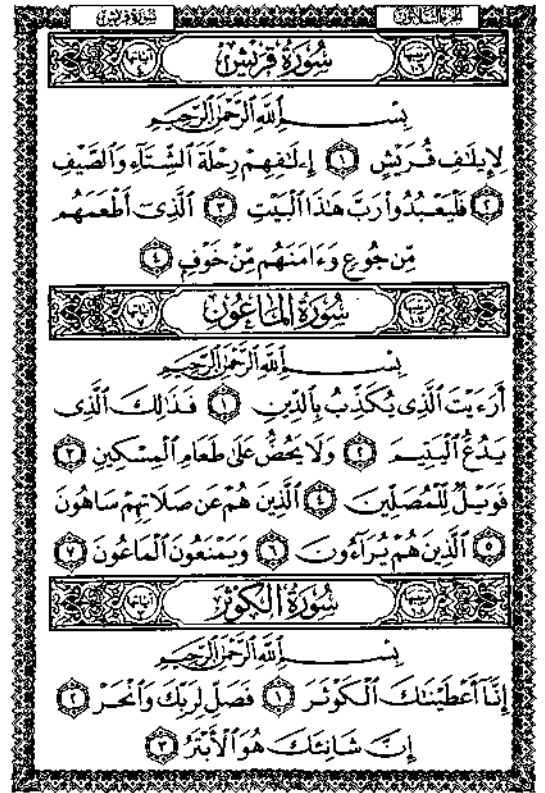 سُورَةُ قُرَيْشٍ الجزء الثلاثون
آياتها ٤ سُورَةُ قُرَيْشٍ ترتيبها ١٠٦
بِسْمِ ٱللَّهِ ٱلرَّحْمَٰنِ ٱلرَّحِيمِ
لِإِيلَٰفِ قُرَيْشٍ ١ إِۦلَٰفِهِمْ رِحْلَةَ ٱلشِّتَآءِ وَٱلصَّيْفِ
٢ فَلْيَعْبُدُوا۟ رَبَّ هَٰذَا ٱلْبَيْتِ ٣ ٱلَّذِىٓ أَطْعَمَهُم
مِّن جُوعٍ وَءَامَنَهُم مِّنْ خَوْفٍۭ ٤
آياتها ٧ سُورَةُ المَاعُونِ ترتيبها ١٠٧
بِسْمِ ٱللَّهِ ٱلرَّحْمَٰنِ ٱلرَّحِيمِ
أَرَءَيْتَ ٱلَّذِى يُكَذِّبُ بِٱلدِّينِ ١ فَذَٰلِكَ ٱلَّذِى
يَدُعُّ ٱلْيَتِيمَ ٢ وَلَا يَحُضُّ عَلَىٰ طَعَامِ ٱلْمِسْكِينِ ٣
فَوَيْلٌ لِّلْمُصَلِّينَ ٤ ٱلَّذِينَ هُمْ عَن صَلَاتِهِمْ سَاهُونَ
٥ ٱلَّذِينَ هُمْ يُرَآءُونَ ٦ وَيَمْنَعُونَ ٱلْمَاعُونَ ٧
آياتها ٣ سُورَةُ الكَوْثَرِ
بِسْمِ ٱللَّهِ ٱلرَّحْمَٰنِ ٱلرَّحِيمِ
إِنَّآ أَعْطَيْنَٰكَ ٱلْكَوْثَرَ ١ فَصَلِّ لِرَبِّكَ وَٱنْحَرْ ٢
إِنَّ شَانِئَكَ هُوَ ٱلْأَبْتَرُ ٣